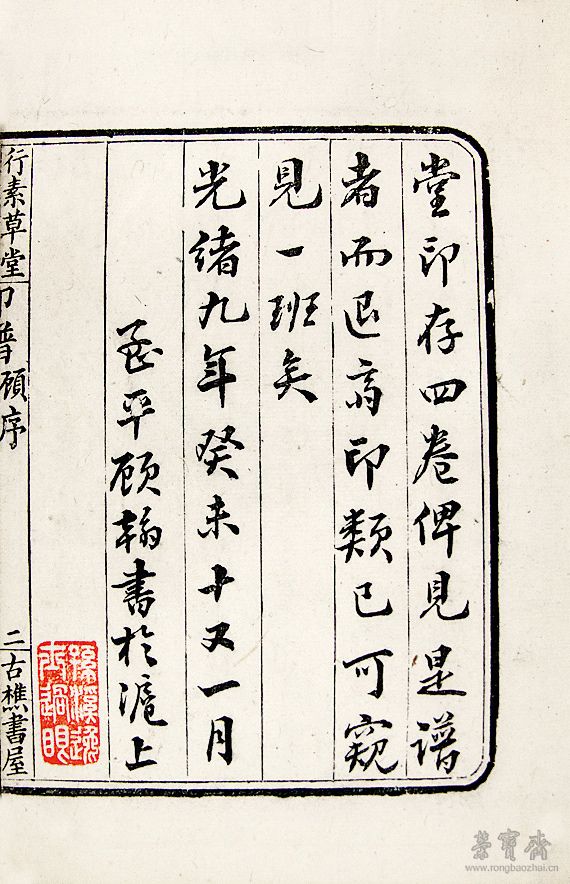 堂印存四卷俾見是譜
者而退齋印類已可窺
見一班矣
光緒九年癸未十又一月
平顧翰書於滬上
孫溪逸
士過眼
行素草堂印譜顧序 二 古樵書屋
榮寶齋
www.rongbaozhai.cn